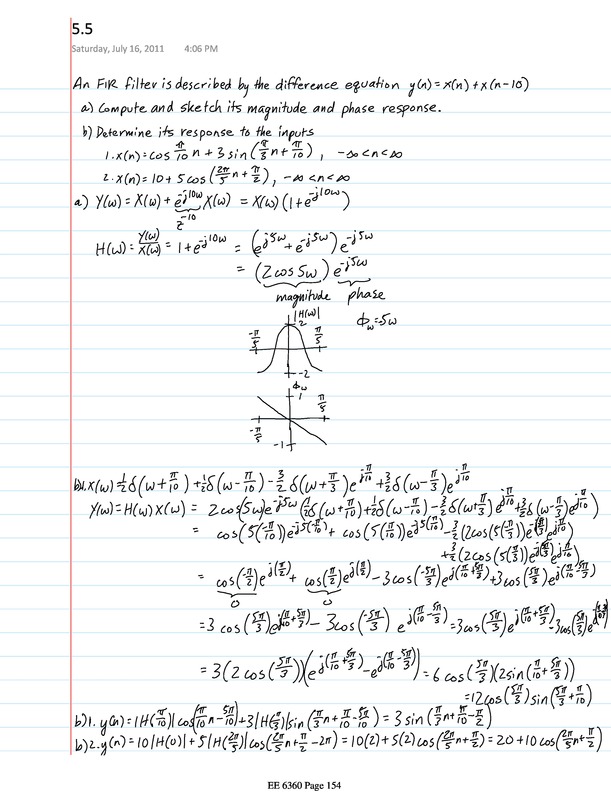 5.5
Saturday, July 16, 2011 4:06 PM
An FIR filter is described by the difference equation y(n)=x(n)+x(n-10)
a) Compute and sketch its magnitude and phase response.
b) Determine its response to the inputs
1. x(n)=cos π/10 n + 3 sin(π/3 n + π/10), -∞<n<∞
2. x(n)=10+5 cos(2π/5 n + π/2), -∞<n<∞
a) Y(ω)=X(ω)+e^-j10ω X(ω) = X(ω)(1+e^-j10ω)
z^-10
H(ω)=Y(ω)/X(ω)=1+e^-j10ω = (e^j5ω+e^-j5ω)e^-j5ω
= (2cos5ω)e^-j5ω
magnitude phase
|H(ω)| ϕω=-5ω
2
-π/5 π/5
-2
ϕω
1 π/5
-π/5
-1
b)1. X(ω) 1/2δ(ω+π/10)+1/2δ(ω-π/10)-3/2δ(ω+π/3)e^jπ/10+3/2δ(ω-π/3)e^jπ/10
Y(ω)=H(ω)X(ω) = 2cos(5ω)e^-j5ω(1/2δ(ω+π/10)+1/2δ(ω-π/10)-3/2δ(ω+π/3)e^jπ/10+3/2δ(ω-π/3)e^jπ/10)
= cos(5(-π/10))e^-j5(-π/10)+cos(5(π/10))e^-j5(π/10)-3/2(2cos(5(-π/3))
+3/2(2cos(5(π/3))
= cos(-π/2)e^j(π/2)+cos(π/2)e^j(π/2)-3cos(-5π/3)e^j(π/10+5π/3)+3cos(5π/3)e^j(π/10-5π/3)
0 0
=3cos(5π/3)e^j(π/10+5π/3)-3cos(-5π/3)e^j(π/10-5π/3)=3cos(5π/3)e^j(π/10+5π/3)-3cos(5π/3)
=3(2cos(5π/3))(e^j(π/10+5π/3)-e^-j(π/10+5π/3))=6cos(5π/3)(2sin(π/10+5π/3))
=12cos(5π/3)sin(5π/3+π/10)
b)1. y(n)=|H(π/10)|cos(π/10 n-5π/10)+3|H(π/3)|sin(π/3 n+π/10-5π/10) = 3 sin(π/3 n+π/10-π/2)
b)2. y(n)=10|H(0)|+5|H(2π/5)|cos(2π/5 n+π/2-2π)=10(2)+5(2)cos(2π/5 n+π/2)=20+10cos(2π/5 n+π/2)
EE 6360 Page 154